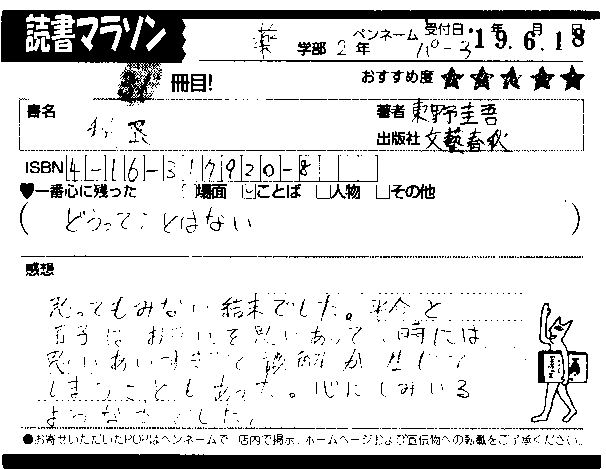 読書マラソン
薬 学部 2 年 ペンネーム パロ-3 受付日 '19年6月18日
31 冊目! おすすめ度 ★★★★★
書名 秘密 著者 東野圭吾
出版社 文藝春秋
ISBN 4-16-317920-8
♥一番心に残った □場面 ☑ことば □人物 □その他
( どうってことはない )
感想
思ってもみない結末でした。平介と
直子はお互いを思いあって、時には
思いあいすぎて誤解が生じて
しまうこともあった。心にしみいる
ような
●お寄せいただいたPOPはペンネームで、店内で掲示、ホームページおよび宣伝物への転載をご了承ください。